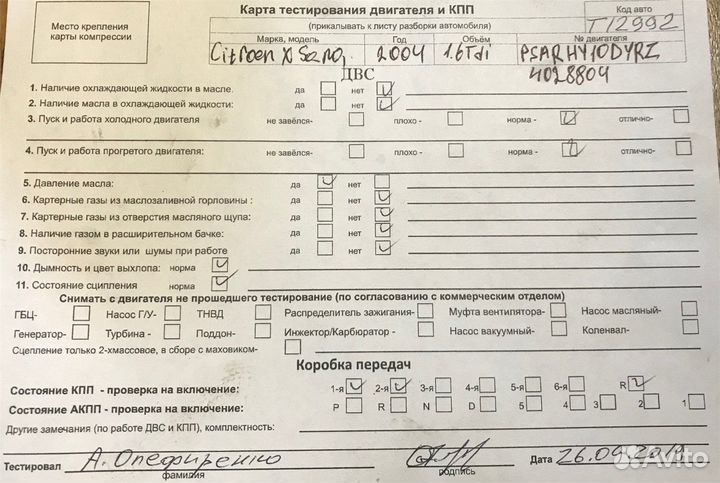 Место крепления
карты компрессии
Карта тестирования двигателя и КПП
(прикалывать к листу разборки автомобиля)
Код авто
T12992
Марка, модель Год Объём № двигателя
Citroen X Sara, 2004 1.6Tdi PSARHY10DYRZ
4028804
ДВС
1. Наличие охлаждающей жидкости в масле. да нет
2. Наличие масла в охлаждающей жидкости: да нет
3. Пуск и работа холодного двигателя не завёлся- плохо - норма - отлично-
4. Пуск и работа прогретого двигателя: не завёлся- плохо - норма - отлично-
5. Давление масла: да нет
6. Картерные газы из маслозаливной горловины : да нет
7. Картерные газы из отверстия масляного щупа: да нет
8. Наличие газом в расширительном бачке: да нет
9. Посторонние звуки или шумы при работе да нет
10. Дымность и цвет выхлопа: норма
11. Состояние сцепления норма
Снимать с двигателя не прошедшего тестирование (по согласованию с коммерческим отделом)
ГБЦ- Насос Г/У- ТНВД Распределитель зажигания- Муфта вентилятора- Насос масляный-
Генератор- Турбина - Поддон- Инжектор/Карбюратор - Насос вакуумный- Коленвал-
Сцепление только 2-хмассовое, в сборе с маховиком-
Коробка передач
Состояние КПП - проверка на включение: 1-я 2-я 3-я 4-я 5-я 6-я R
Состояние АКПП - проверка на включение: P R N D 5 4 3 2 1
Другие замечания (по работе ДВС и КПП), комплектность:
Тестировал А. Опефиренко Дата 26.09.2019
фамилия подпись
Avito